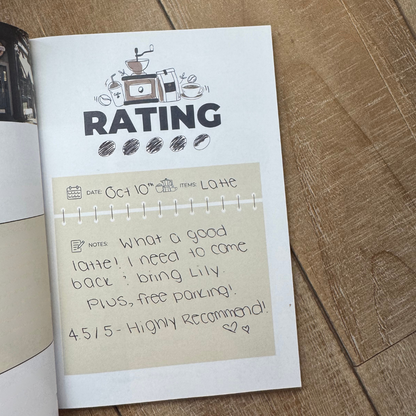 RATING
DATE: Oct 10th ITEMS: Latte
NOTES: What a good
latte! I need to come
back & bring Lily.
Plus, free parking!
4.5/5 - Highly Recommend!